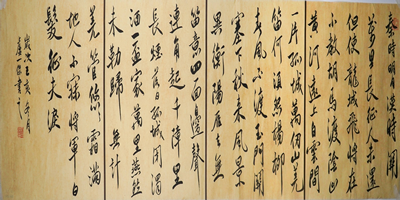 秦時明月漢時関
萬里長征人未還
但使龍城飛將在
不教胡馬渡陰山
黄河遠上白雲間
一片孤城萬仞山羌
笛何須怨楊柳
春風不渡玉門関
塞下秋来風景
異衡陽雁去無
留意四面邊聲
連角起千嶂里
長煙落日孤城閉濁
酒一盃家萬里燕然
未勒歸無計
羌管悠悠霜滿
地人不寐將軍白
髮征夫淚
歲次己亥年月